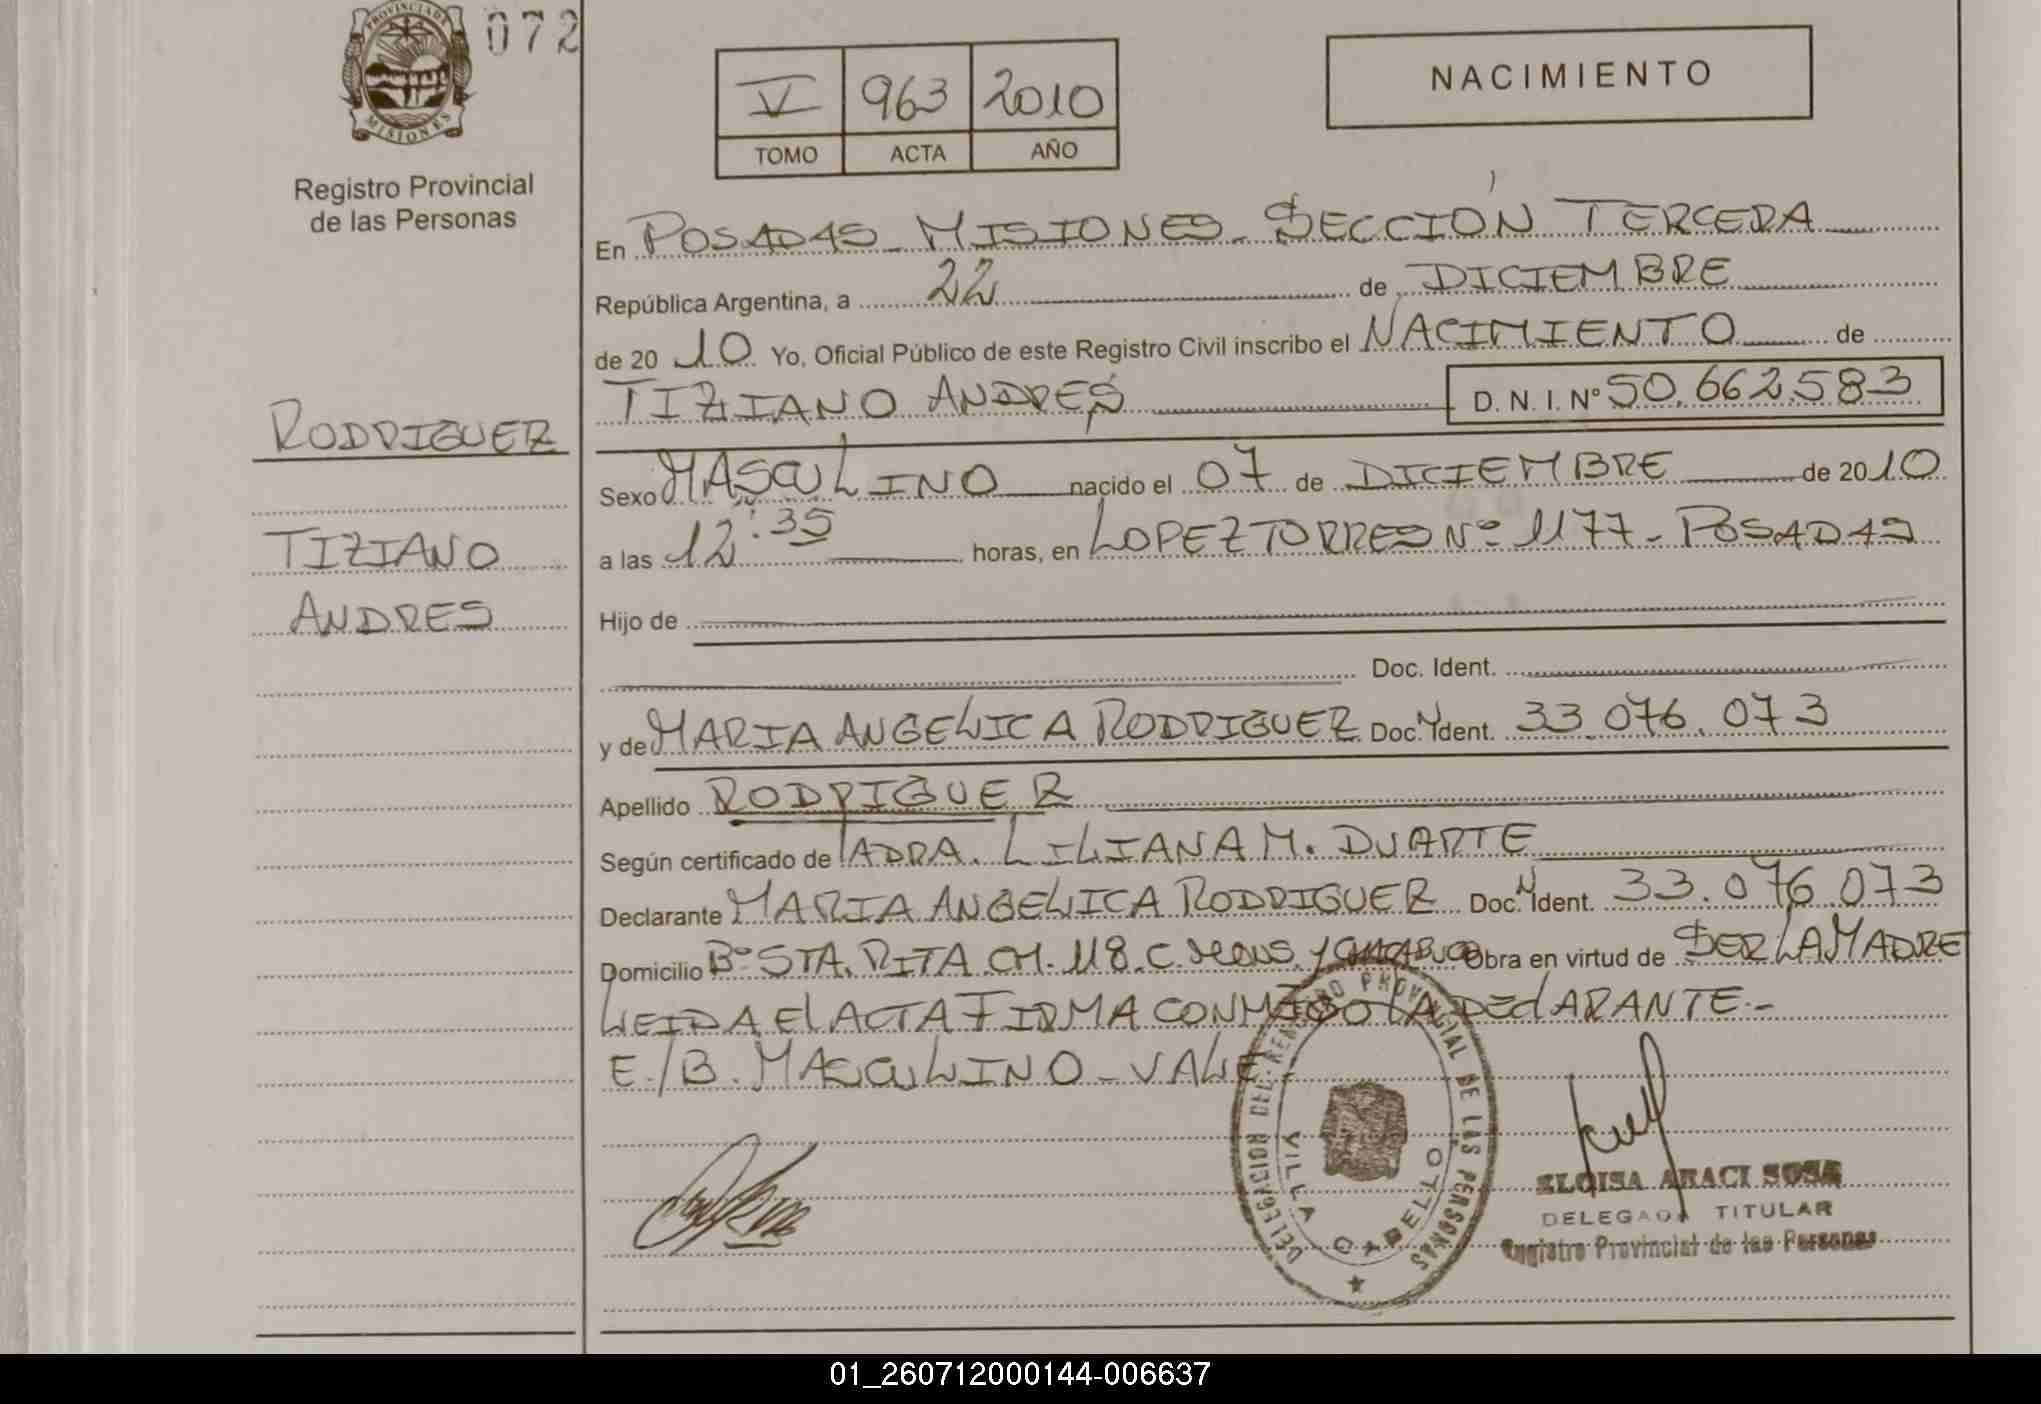 PROVINCIA DE
MISIONES
072
Registro Provincial
de las Personas
V 963 2010
TOMO ACTA AÑO
NACIMIENTO
En POSADAS - MISIONES - SECCIÓN TERCERA
República Argentina, a 22 de DICIEMBRE
de 20 10 Yo, Oficial Público de este Registro Civil inscribo el NACIMIENTO de
TIZIANO ANDRES D. N. I. N° 50.662.583
RODRIGUEZ
TIZIANO
ANDRES
Sexo MASCULINO nacido el 07 de DICIEMBRE de 2010
a las 12:35 horas, en LOPEZ TORRES Nº 1177 - POSADAS
Hijo de
Doc. Ident.
y de MARIA ANGELICA RODRIGUEZ Doc. Ident. 33.076.073
Apellido RODRIGUEZ
Según certificado de LILIANA M. DUARTE
Declarante MARIA ANGELICA RODRIGUEZ Doc. Ident. 33.076.073
Domicilio Bº STA. RITA CH. 118. C. Obra en virtud de SER LA MADRE
LEIDA El ACTA FIRMA CONMIGO LA DEClARANTE.-
E./B. MASCULINO - VALE
DELEGACION DEL REGISTRO PROVINCIAL DE LAS PERSONAS
VILLA CABELLO
ELOISA ARACI SOSA
DELEGADA TITULAR
Registro Provincial de las Personas
01_260712000144-006637